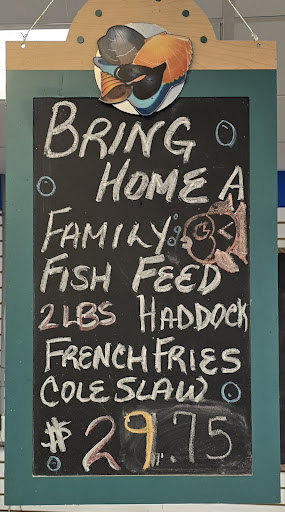 BRING
HOME A
FAMILY
FISH FEED
2 LBS HADDOCK
FRENCH FRIES
COLE SLAW
$29.75